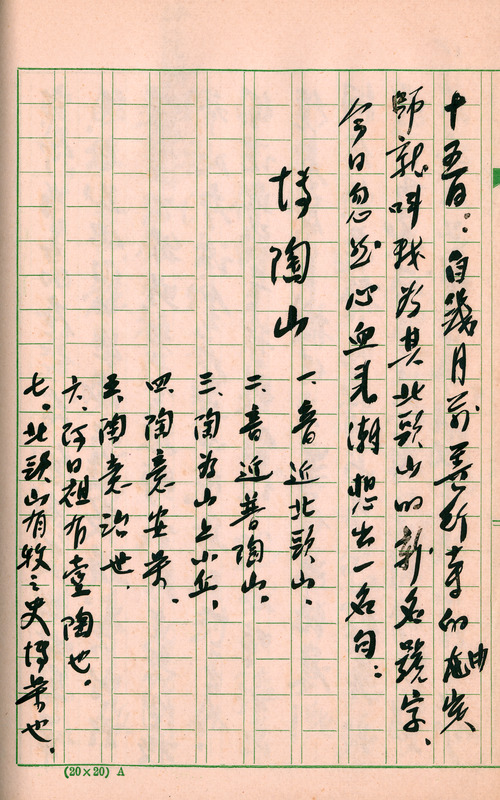 十五日：自幾月前善行寺的曲岩
師就叫我為其北頭山的新名號字、
今日忽然心血來潮想出一名曰：
博陶山
一、音近北頭山。
二、音近普陶山。
三、陶為山上小丘。
四、陶意安樂。
五、陶意治世。
六、阿日祖有壹陶也。
七、北頭山有牧之史博業也。
(20×20) A